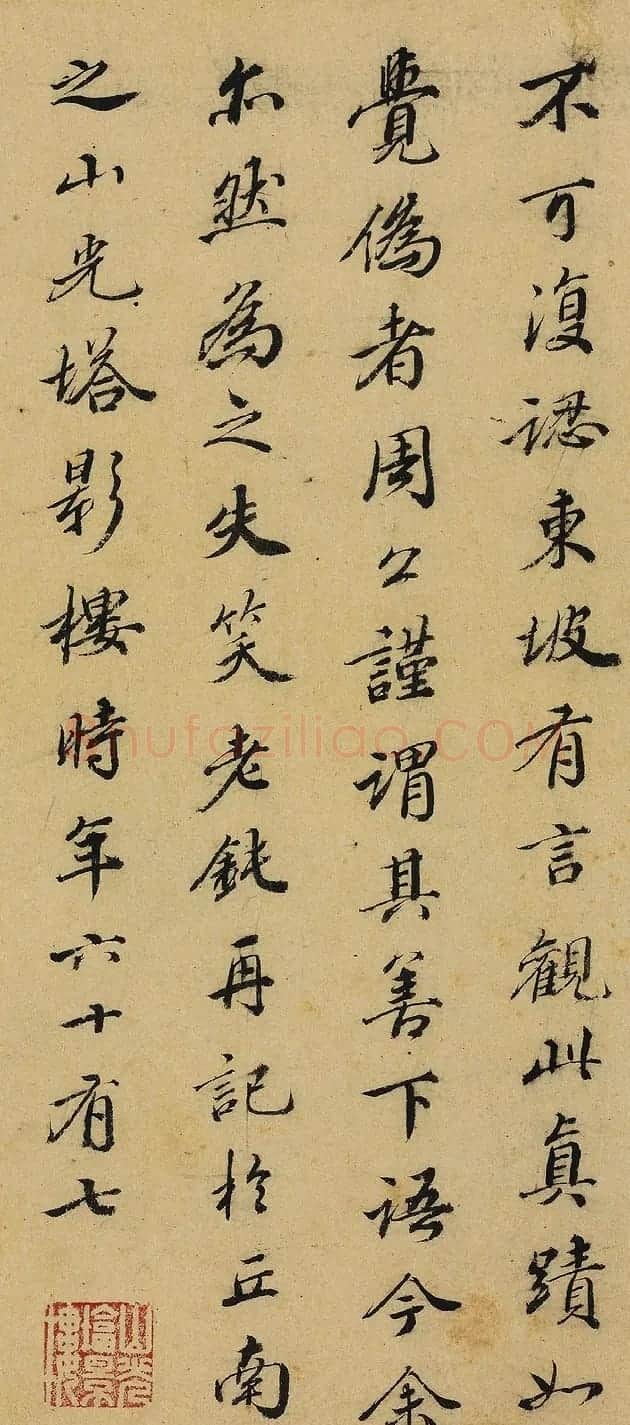 不可復認東坡有言觀此真蹟如
覺偽者周公謹謂其善下語今余
亦然為之失笑老鈍再記於丘南
之山光塔影樓時年六十有七